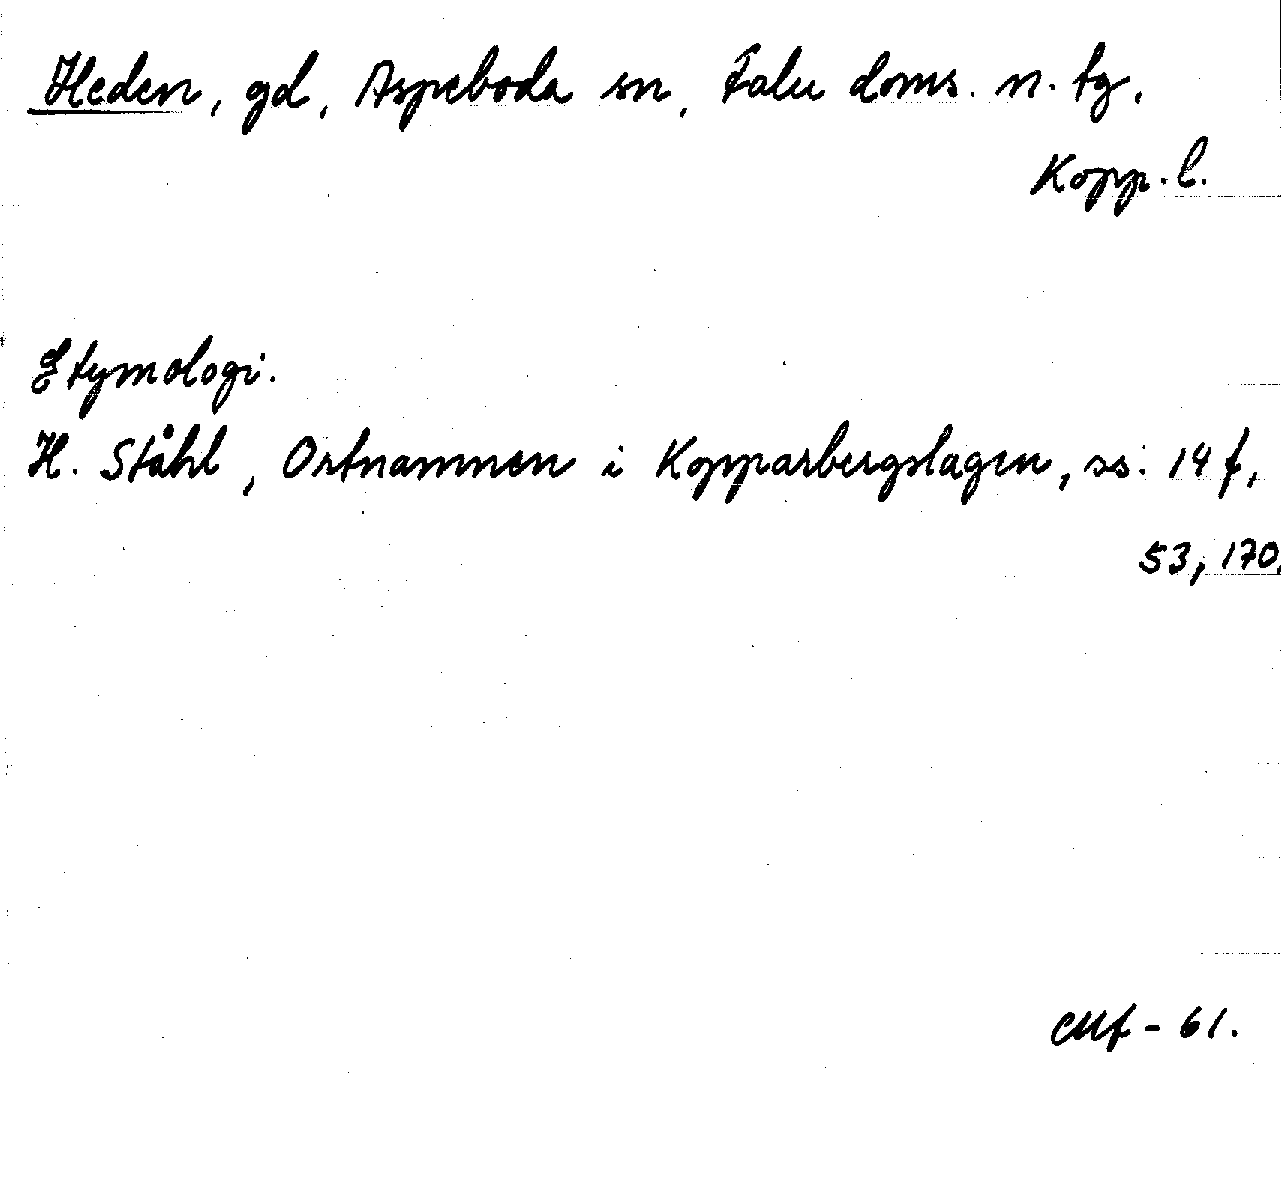 Heden, gd, Aspeboda sn, Falu doms. n. tg.
Kopp. l.
Etymologi.
H. Ståhl, Ortnamnen i Kopparbergslagen, ss. 14 f,
53, 170.
- 61.